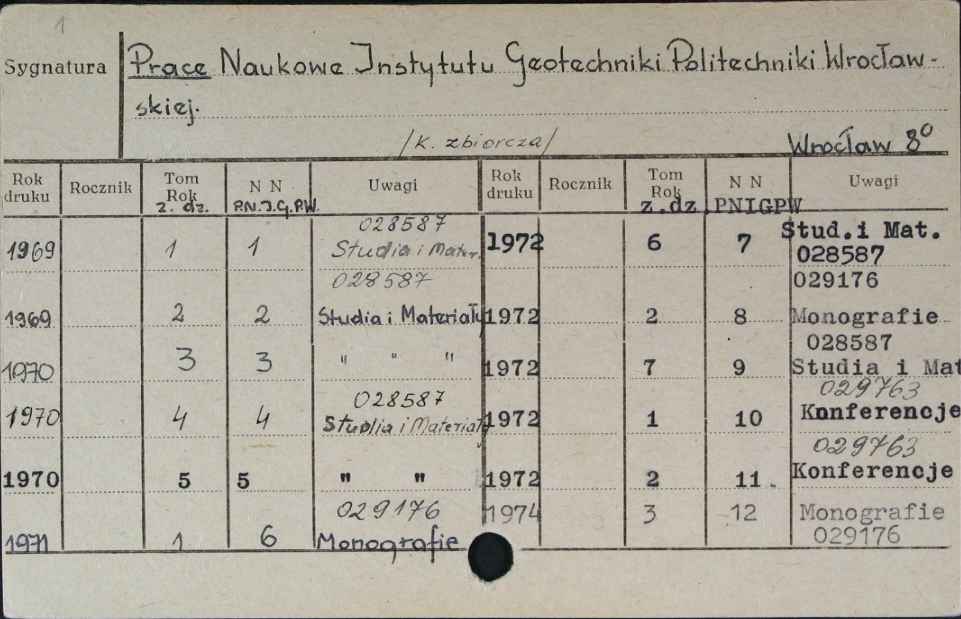 1
Sygnatura
Prace Naukowe Instytutu Geotechniki Politechniki Wrocław-
skiej.
/k. zbiorcza/
Wrocław 8⁰
Rok druku Rocznik Tom Rok z. dz. N N P.N.I.G.P.W. Uwagi Rok druku Rocznik Tom Rok z.dz. N N PNIGPW Uwagi
028587
1969 1 1 Studia i Mater. 1972 6 7 Stud.i Mat.
028587
028587
029176
1969 2 2 Studia i Materiały 1972 2 8 Monografie
028587
1970 3 3 " " " 1972 7 9 Studia i Mat
028587
029763
1970 4 4 Studia i Materiały 1972 1 10 Konferencje
029763
1970 5 5 " " 1972 2 11. Konferencje
029176
1974 3 12 Monografie
029176
1971 1 6 Monografie